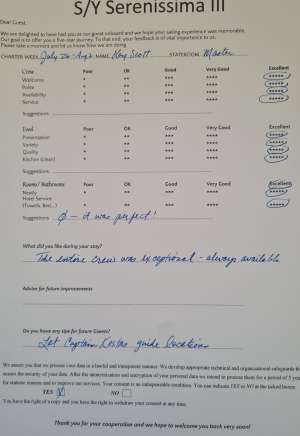 S/Y Serenissima III
Dear Guest,
We are delighted to have had you as our guest onboard and we hope your sailing experience was memorable.
Our goal is to offer you a five-star journey. To that end, your feedback is of vital importance to us.
Please take a moment and let us know how we are doing
CHARTER WEEK NAME Scott STATEROOM Master
Crew Poor OK Good Very Good Excellent
Welcome * ** *** **** *****
Polite * ** *** **** *****
Availability * ** *** **** *****
Service * ** *** **** *****
Suggestions
Food Poor OK Good Very Good Excellent
Presentation * ** *** **** *****
Variety * ** *** **** *****
Quality * ** *** **** *****
Kitchen (clean) * ** *** **** *****
Suggestions
Rooms/ Bathrooms Poor OK Good Very Good Excellent
Neatly * ** *** **** *****
Hotel Service
(Towels, Bed,..) * ** *** **** *****
Suggestions Ø - it was perfect!
What did you like during your stay?
The entire crew was exceptional - always available
Advise for future improvements
Do you have any tips for future Guests?
Let Captain Costas guide locations
We assure you that we process your data in a lawful and transparent manner. We develop appropriate technical and organizational safeguards
ensure the security of your data. After the anonymization and encryption of your personal data we intend to process them for a period of 5
for statistic reason and to improve our services. Your consent is an indispensable condition. You can indicate YES or NO in the ticked boxes
YES NO
You have the right of a copy and you have the right to withdraw your consent at any time.
Thank you for your cooperation and we hope to welcome you back very soon!